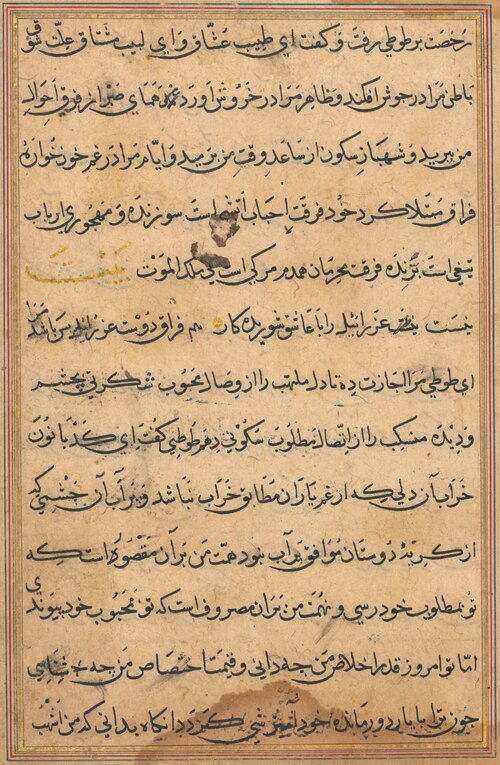 رخصت بر طوطی رفت و کفت ای طبیب عشّاق و ای لبیب مشتاق علت شوق
باطن مرا در جوش افکند و ظاهر مرا در خروش آورد همای صبر از فرق احوال
من ببرید و شهباز سکون از ساعد وقت من برمید و ایام مرا در غم خود خواره
فراق مبتلا کرد خود فرقت احباب آتشی است سوزنده و مهجوری ارباب
تیغی است برنده فرقت محرمان همدم مرکی است بی ملک الموت بیت
نیست عزرائیل را با عاشق شوریده کار هم فراق دوست عزرائیل بس باشد مرا
ای طوطی مرا اجازت ده تا دل ملتهب را از وصال محبوب شکرتی بچشم
و دیده منسکب را از اتصال مطلوب سکونی دهم طوطی کفت ای کدبانو
خراب آن دلی که از غم یاران مطابق خراب نباشد و بر آب آن چشمی که
از کریهٔ دوستان موافق بر آب نبود همت من بر آن مقصور است که
تو بمطلوب خود رسی و نهمت من بر آن مصروف است که تو بمحبوب خود پیوندی
اما تو امروز قدر اخلاص من چه دانی و قیمت اختصاص من چه شناسی
چون ترا با یار دور مانده خود شبی کرددانکاه بدانی که من